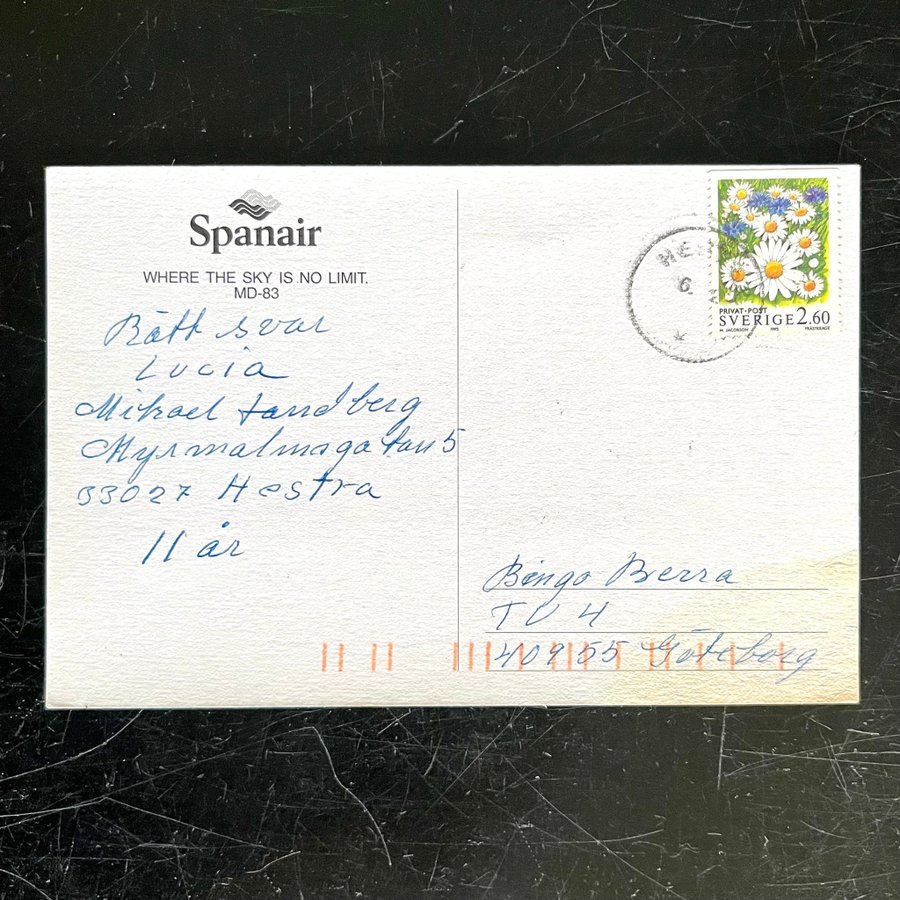 Spanair
WHERE THE SKY IS NO LIMIT.
MD-83
Rätt svar
Lucia
Mikael Sandberg
Myrmalmsgatan 5
33027 Hestra
11 år
HES
6.
PRIVAT·POST
SVERIGE 2.60
M. JACOBSON 1992 PRÄSTKRAGE
Bingo Berra
TV 4
40955 Göteborg